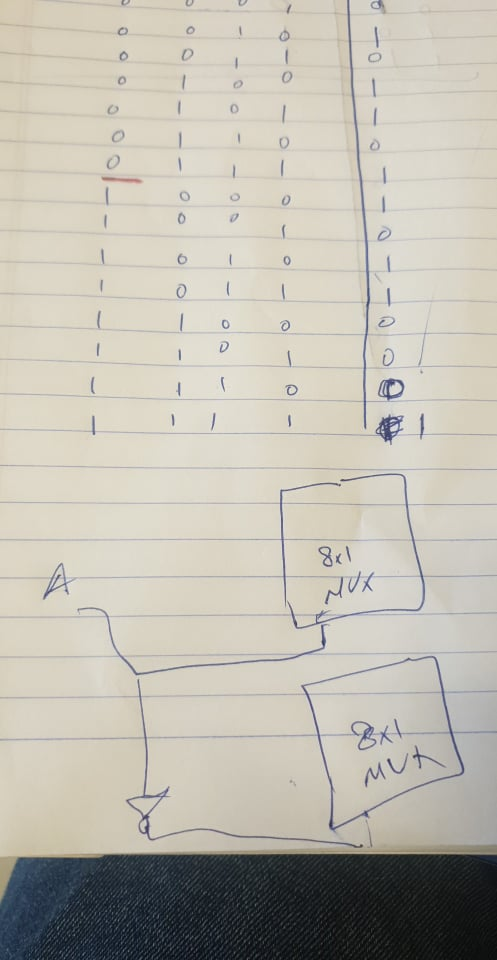 0 0 1 0 1
0 0 1 1 0
0 1 0 0 1
0 1 0 1 1
0 1 1 0 0
0 1 1 1 1
1 0 0 0 1
1 0 0 1 0
1 0 1 0 1
1 0 1 1 1
1 1 0 0 0
1 1 0 1 0
1 1 1 0 0
1 1 1 1 1
A
8x1
MUX
8x1
MUX